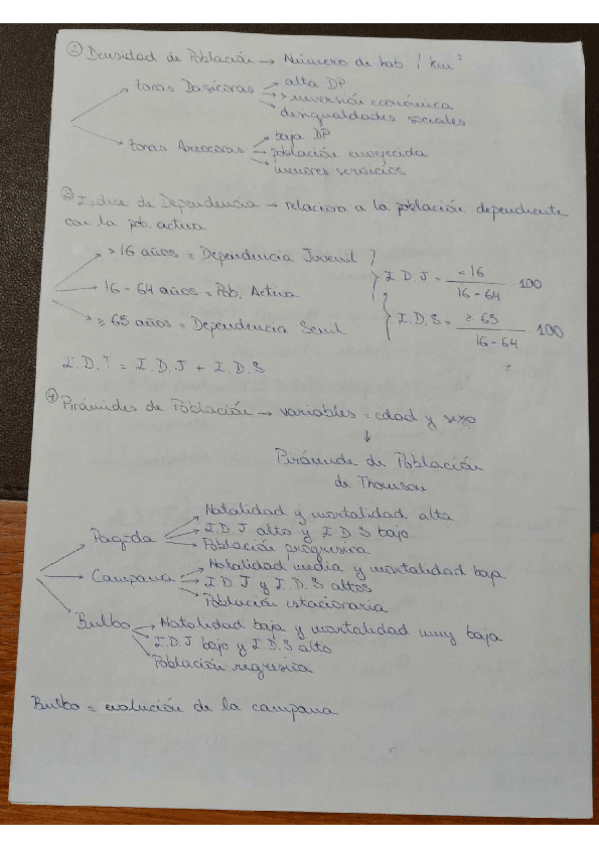 ② Densidad de Población → Número de hab / km²
→ Zonas Dasícoras → alta DP
→ > inversión económica
→ desigualdades sociales
→ Zonas Areocoras → baja DP
→ población envejecida
→ menores servicios
③ Indice de Dependencia → relaciona a la población dependiente
con la pob. activa
→ >16 años = Dependencia Juvenil } I.D.J = <16 / 16-64 · 100
→ 16-64 años = Pob. Activa
→ ≥65 años = Dependencia Senil } I.D.S = ≥65 / 16-64 · 100
I.D.T = I.D.J + I.D.S
④ Pirámides de Población → variables = edad y sexo
↓
Pirámide de Población
de Thomson
→ Pagoda → Natalidad y mortalidad alta
→ I.D.J alto y I.D.S bajo
→ Población progresiva
→ Campana → Natalidad media y mortalidad baja
→ I.D.J y I.D.S altos
→ Población estacionaria
→ Bulbo → Natalidad baja y mortalidad muy baja
→ I.D.J bajo y I.D.S alto
→ Población regresiva
Bulbo = evolución de la campana